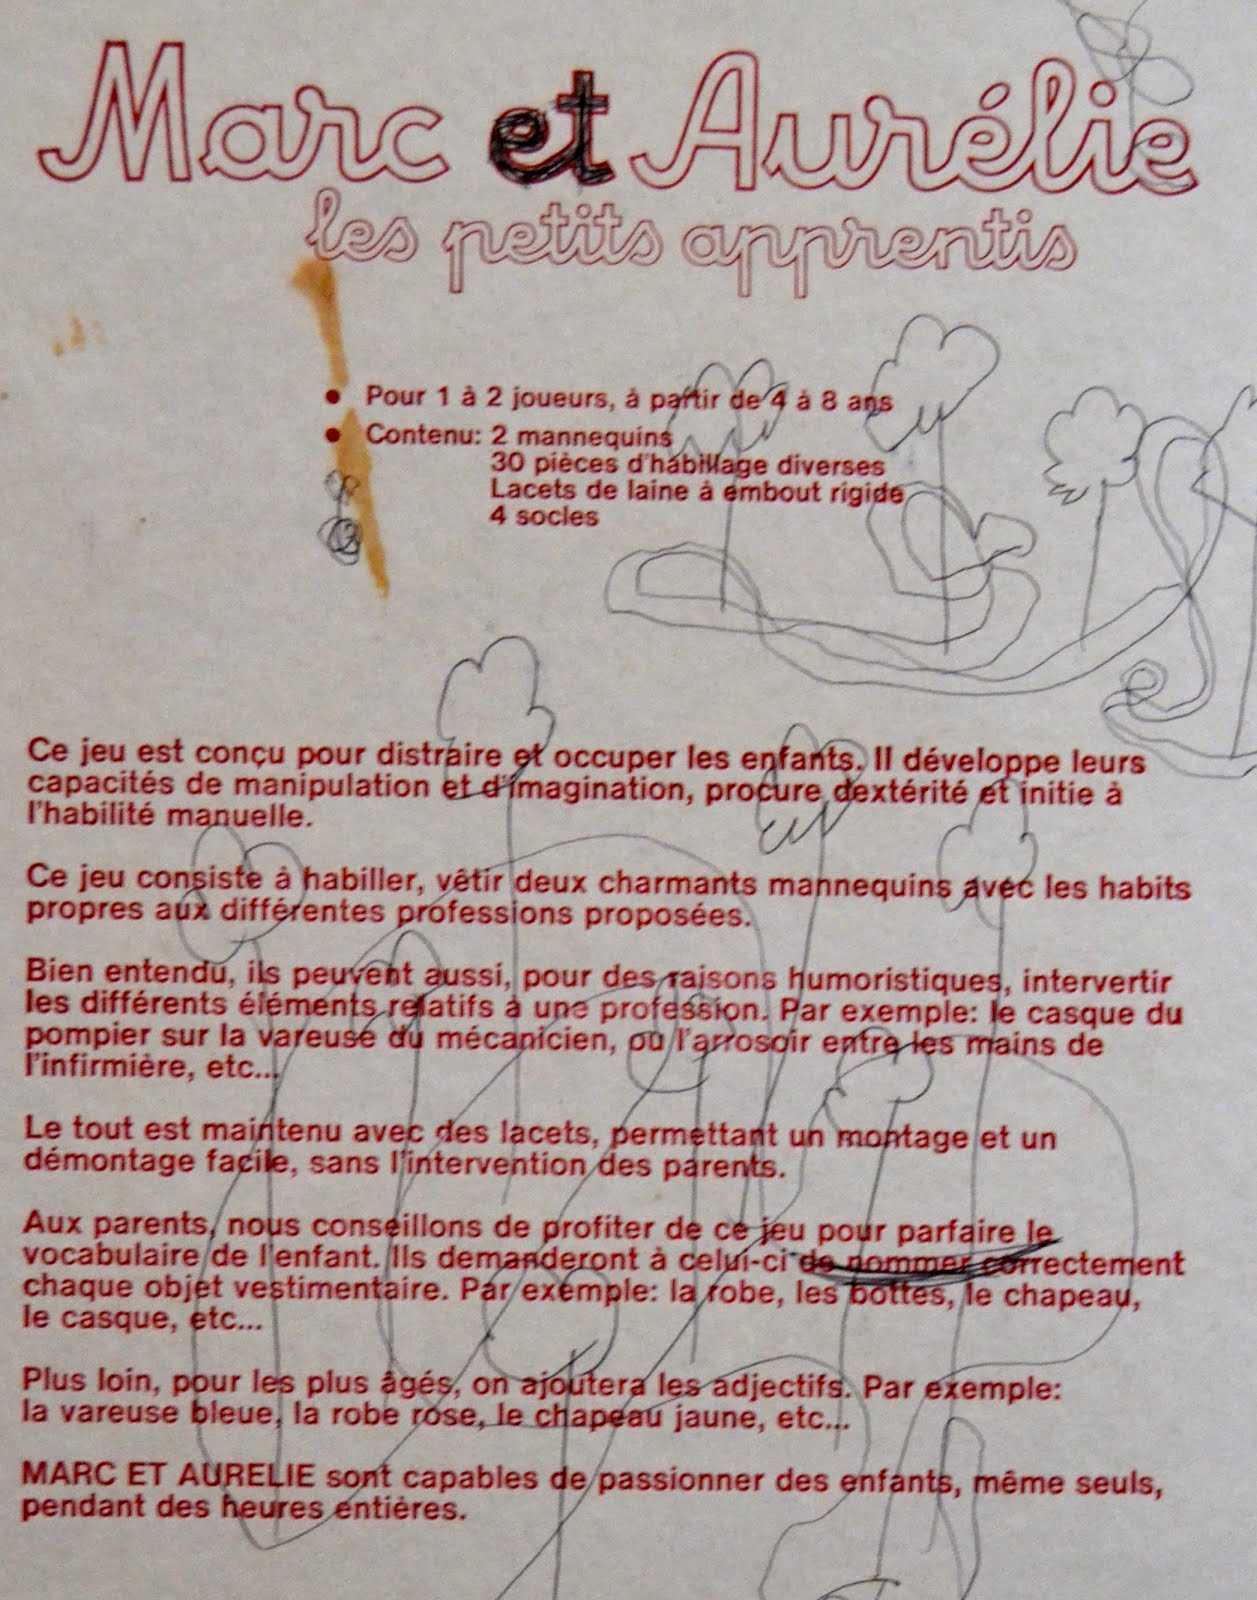 Marc et Aurélie
les petits apprentis
• Pour 1 à 2 joueurs, à partir de 4 à 8 ans
• Contenu: 2 mannequins
30 pièces d'habillage diverses
Lacets de laine à embout rigide
4 socles
Ce jeu est conçu pour distraire et occuper les enfants. Il développe leurs
capacités de manipulation et d'imagination, procure dextérité et initie à
l'habilité manuelle.
Ce jeu consiste à habiller, vêtir deux charmants mannequins avec les habits
propres aux différentes professions proposées.
Bien entendu, ils peuvent aussi, pour des raisons humoristiques, intervertir
les différents éléments relatifs à une profession. Par exemple: le casque du
pompier sur la vareuse du mécanicien, ou l'arrosoir entre les mains de
l'infirmière, etc...
Le tout est maintenu avec des lacets, permettant un montage et un
démontage facile, sans l'intervention des parents.
Aux parents, nous conseillons de profiter de ce jeu pour parfaire le
vocabulaire de l'enfant. Ils demanderont à celui-ci de nommer correctement
chaque objet vestimentaire. Par exemple: la robe, les bottes, le chapeau,
le casque, etc...
Plus loin, pour les plus âgés, on ajoutera les adjectifs. Par exemple:
la vareuse bleue, la robe rose, le chapeau jaune, etc...
MARC ET AURELIE sont capables de passionner des enfants, même seuls,
pendant des heures entières.